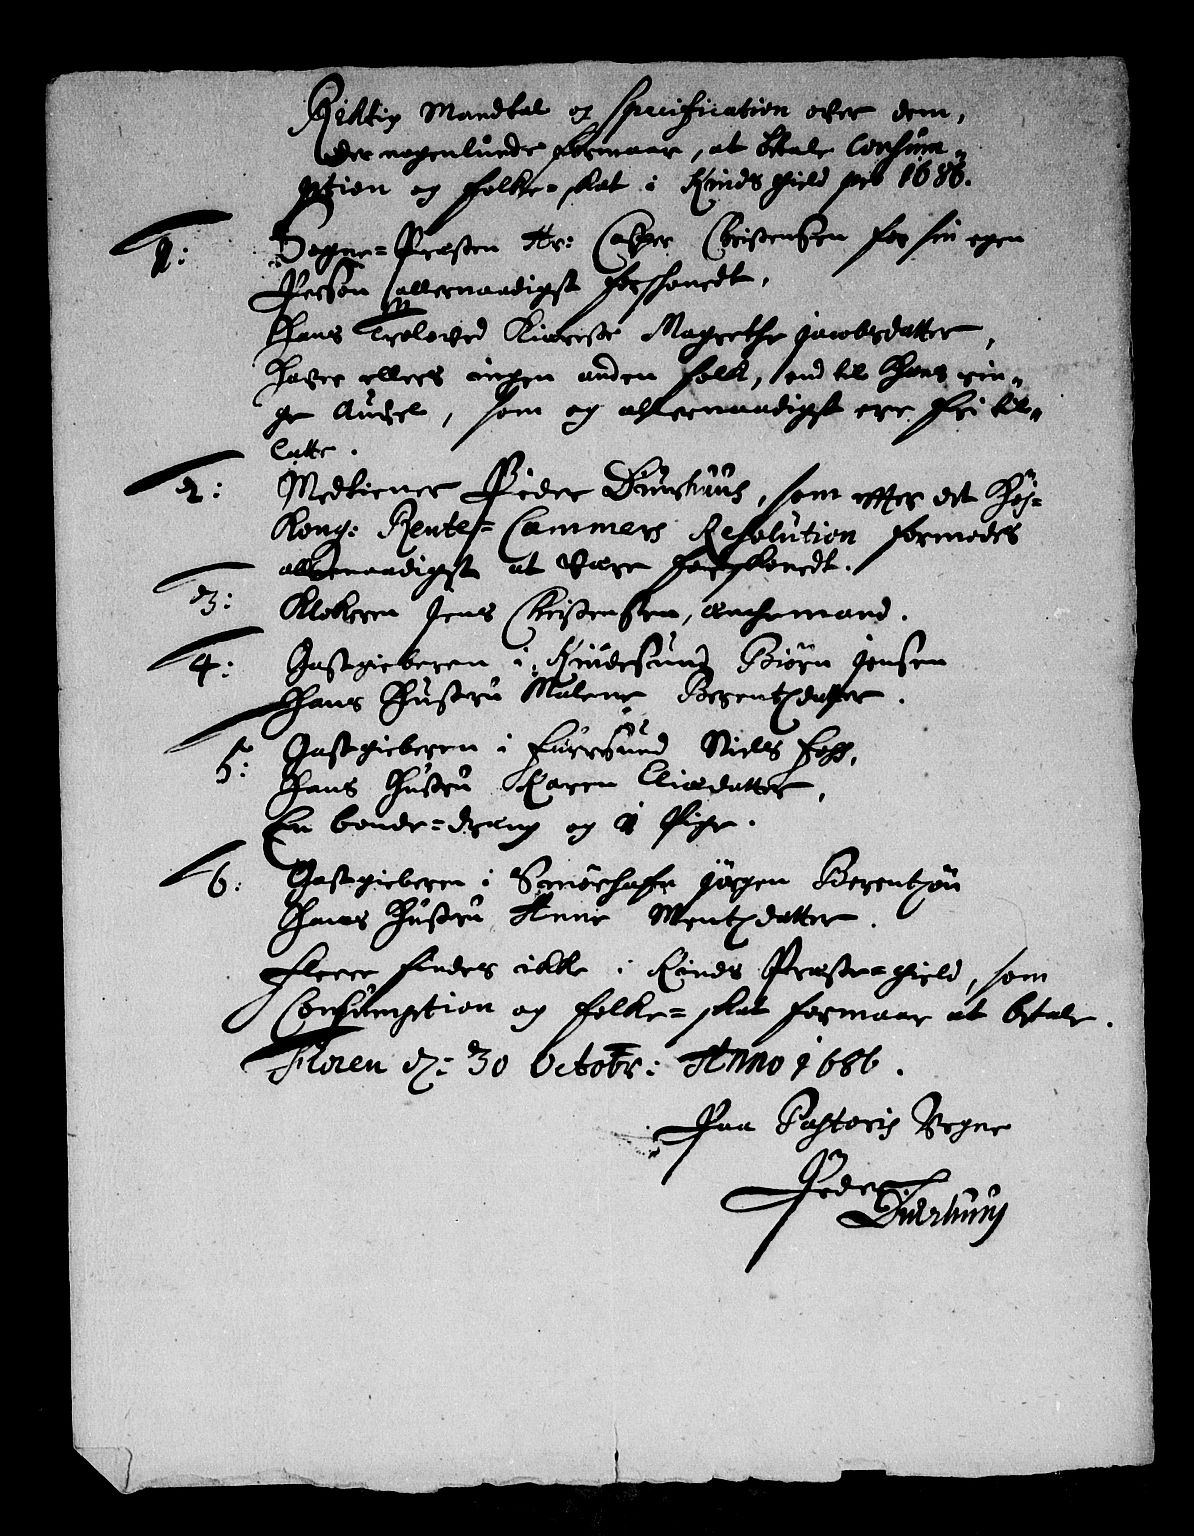 Richtig Mandtal og specification over dem,
der nogenlunde formaar, at betale Consum-
ption og folke-skat i Kinds gield pro 1686.
1: Sogne-Præsten Hr: Casper Christensen for sin egen
Person allernaadigst forskonedt,
Hans Troloved Kiæreste Magrethe Jacobsdatter,
Haver ellers ingen anden folk, end til Hans rin-
ge Auvel, som og allernaadigst ere fri til-
latte.
2: Medtiener Peder Duurhuus, som efter det Høy-
Kong: Rente-Cammers Resolution formodes
allernaadigst at være forskonedt.
3: Klokeren Jens Christensen, ænchemand.
4: Gastgieberen i Kindesund Biørn Jensen
Hans Hustru Malene Berentzdatter.
5: Gastgieberen i Furresund Niels Foss,
Hans Hustru Karen Eliædatter,
En bonde-dreng og 1 Pige.
6: Gastgieberen i Smørhafn Jørgen Berentzøn
Hans Hustru Anne Mentzdatter.
Fleere findes ikke i Kinds Præste-gield, som
Consumption og folke-skat formaar at betale.
Floren d: 30 Octobr: Anno 1686.
Paa Pastoris Vegne
Peder
Duurhuus